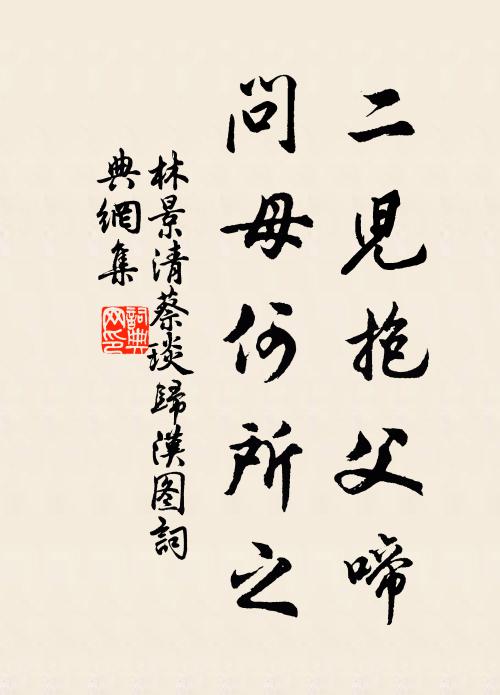 二兒抱父啼
問母何所之
林景清蔡琰歸漢图詞
典網集
詞典
网印